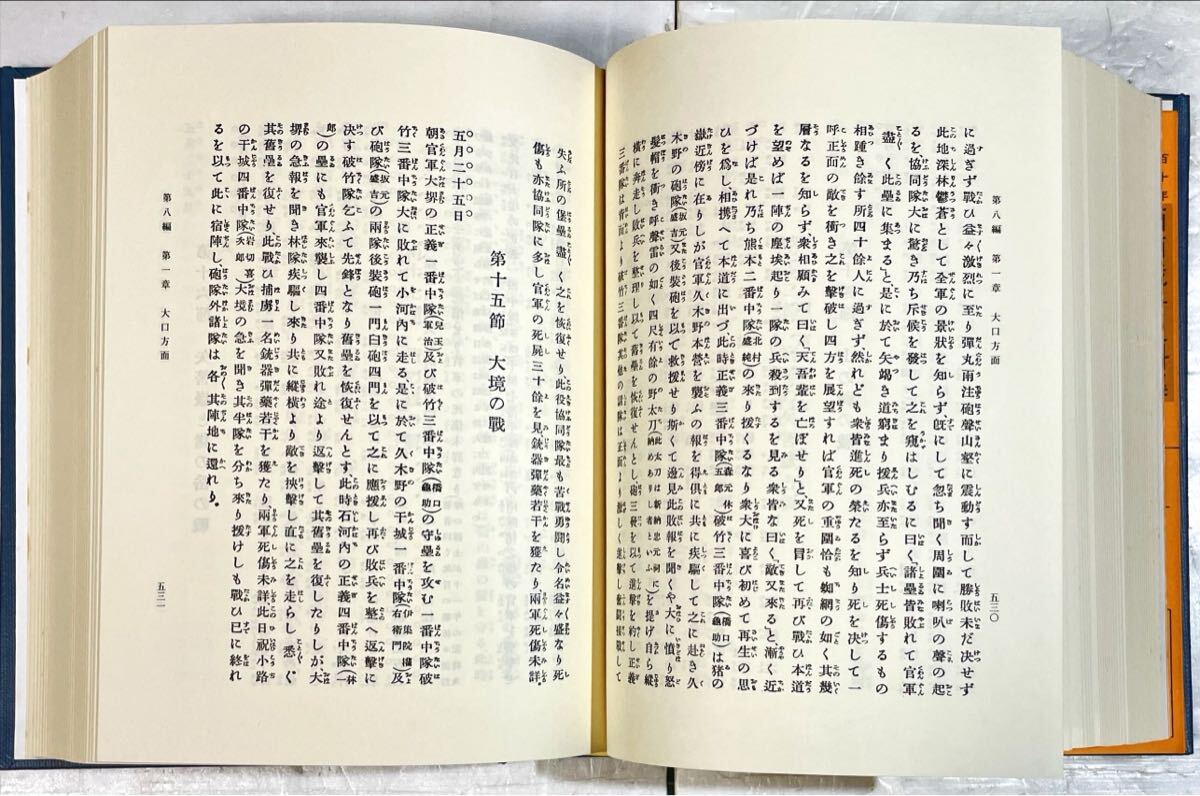 第八編　第一章　大口方面
五三〇
に過ぎず戰ひ益々激烈に至り彈丸雨注砲聲山壑に震動す而して勝敗未だ決せず
此地深林鬱蒼として全軍の景狀を知らず既にして忽ち聞く周圍に喇叭の聲の起
るを、協同隊大に驚き乃ち斥候を發して之を窺はしむるに曰く「諸壘皆敗れて官軍
盡く此壘に集まる」と、是に於て矢竭き道窮まり援兵亦至らず兵士死傷するもの
相踵き餘す所四十餘人に過ぎず然れども衆皆進死の榮たるを知り死を決して一
呼正面の敵を衝き之を擊破し四方を展望すれば官軍の重圍恰も蜘網の如く其幾
層なるを知らず、衆相顧みて曰く、「天吾輩を亡ぼせり」と、又死を冒して再び戰ひ本道
を望めば一陣の塵埃起り一隊の兵殺到するを見る衆皆な曰く、「敵又來る」と、漸く近
づけば是れ乃ち熊本二番中隊(北村盛純)の來り援くるなり衆大に喜び初めて再生の思
ひを爲し、相携へて本道に出づ此時正義三番中隊(森元休五郎)破竹三番中隊(橋口龜助)は猪の
嶽近傍に在りしが官軍久木野本營を襲ふの報を得倶に共に疾驅して之に赴き久
木野の砲隊(坂元盛吉)又後裝砲を以て救援せり斯くて邊見此敗報を聞くや大に憤り怒
髮帽を衝き呼聲雷の如く四尺有餘の野太刀(此太刀は新納忠元祠に納めありし者といふ)を提げ自ら縱
橫に奔走し敗兵を整理し以て舊壘を恢復せんとし、砲三發を以て進擊を約し正義
三番隊は背面より破竹三番隊其他の諸隊は正面より激しく進擊し奮鬪接戰して
失ふ所の堡壘盡く之を恢復せり此役協同隊最も苦戰勇鬪し令名益々盛なり死
傷も亦協同隊に多し官軍の死屍三十餘を見銃器彈藥若干を獲たり兩軍死傷未詳。
第十五節　大境の戰
五月二十五日
朝官軍大堺の正義一番中隊(兒玉軍治)及び破竹三番中隊(橋口龜助)の守壘を攻む一番中隊破
竹三番中隊大に敗れて小河內に走る是に於て久木野の干城一番中隊(伊集院權右衞門)及
び砲隊(坂元盛吉)の兩隊後裝砲一門臼砲四門を以て之に應援し再び敗兵を整へ返擊に
決す破竹隊乞ふて先鋒となり舊壘を恢復せんとす此時石河內の正義四番中隊(林
郎)の壘にも官軍來襲し四番中隊又敗れ途より返擊して其舊壘を復したりしが、大
堺の急報を聞き林隊疾驅し來り共に縱橫より敵を挾擊し直に之を走らし悉く
其舊壘を復せり、此戰ひ捕虜一名銃器彈藥若干を獲たり、兩軍死傷未詳此日祝小路
の干城四番中隊(岩切喜次郎)大境の急を聞き其半隊を分ち來り援けしも戰ひ已に終れ
るを以て此に宿陣し、砲隊外諸隊は各其陣地に還れり。
第八編　第一章　大口方面
五三一